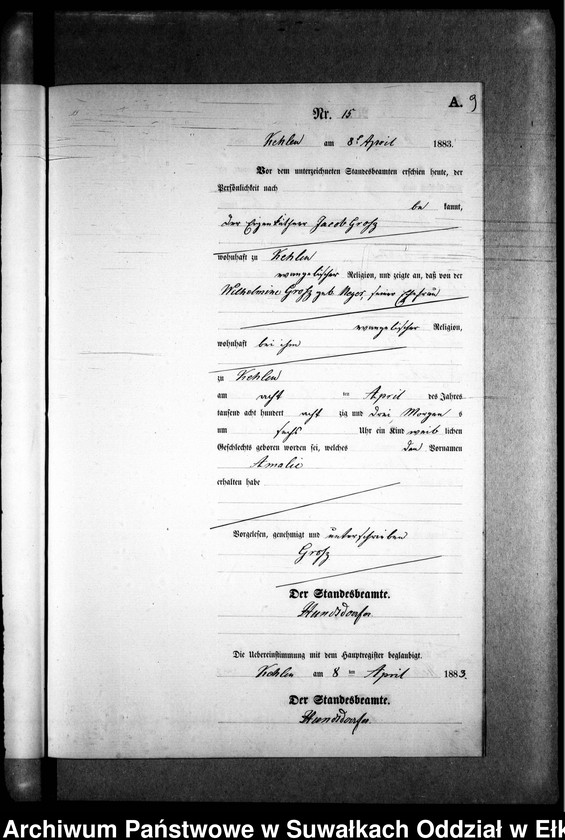 A. 9
Nr. 15
Kehlen am 8t April 1883.
Vor dem unterzeichneten Standesbeamten erschien heute, der
Persönlichkeit nach
be kannt,
der Eigenkäthner Jacob Grosz
wohnhaft zu Kehlen
evangelischer Religion, und zeigte an, daß von der
Wilhelmine Grosz geb. seiner Ehefrau
evangelischer Religion,
wohnhaft bei ihm
zu Kehlen
am acht ten April des Jahres
tausend acht hundert acht zig und drei Morgens
um sechs Uhr ein Kind weib lichen
Geschlechts geboren worden sei, welches den Vornamen
Amalie
erhalten habe
Vorgelesen, genehmigt und unterschrieben
Grosz
Der Standesbeamte.
Hundsdorfer
Die Uebereinstimmung mit dem Hauptregister beglaubigt.
Kehlen am 8 ten April 1883.
Der Standesbeamte.
Hundsdorfer
Archiwum Państwowe w Suwałkach Oddział w Ełk